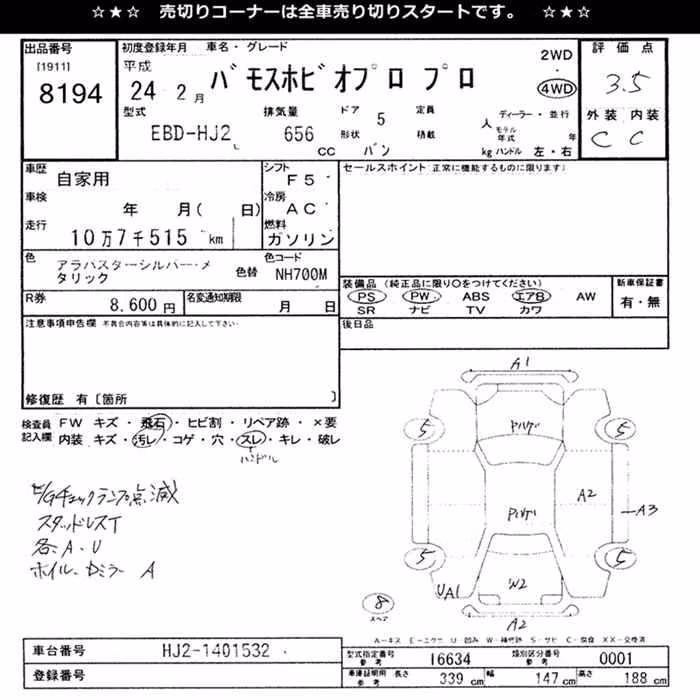 ☆★☆　売切りコーナーは全車売り切りスタートです。　☆★☆
出品番号
[1911]
8194
初度登録年月　車名・グレード
平成
24 2月
バモスホビオプロ プロ
2WD
4WD
型式
EBD-HJ2
排気量
656
CC
ドア 5
形状 バン
定員
人
積載
kg
ディーラー・並行
モデル年式 年
ハンドル 左・右
評価点
3.5
外装 内装
C C
車歴
自家用
シフト
F5
車検
年 月( 日)
冷房
AC
走行
10万7千515 km
燃料
ガソリン
色
アラバスターシルバー・メタリック
色替
色コード
NH700M
R券
8,600 円
名変通知期限
月 日
セールスポイント (正常に機能するものに限ります)
装備品 (純正品に限り○をつけてください)
PS PW ABS エアB AW
SR ナビ TV カワ
新車保証書
有・無
後日品
注意事項申告欄 不具合内容等は具体的に記入して下さい.
修復歴 有〔箇所 〕
検査員記入欄
FW キズ・飛石・ヒビ割・リペア跡・×要
内装 キズ・汚レ・コゲ・穴・スレ・キレ・破レ
ハンドル
E/Gチェックランプ点滅
スタッドレスT
各A・U
ホイル、ドミラー A
A1
5
5
A2
A3
5
5
UA1
W2
8
スペア
A2
A-キズ E-エクボ U-凹み W-補修跡 S-サビ C-腐食 XX-交換済
車台番号
HJ2-1401532
登録番号
型式指定番号 参考
16634
類別区分番号 参考
0001
車庫証明用 参考
長さ 339 cm
幅 147 cm
高さ 188 cm